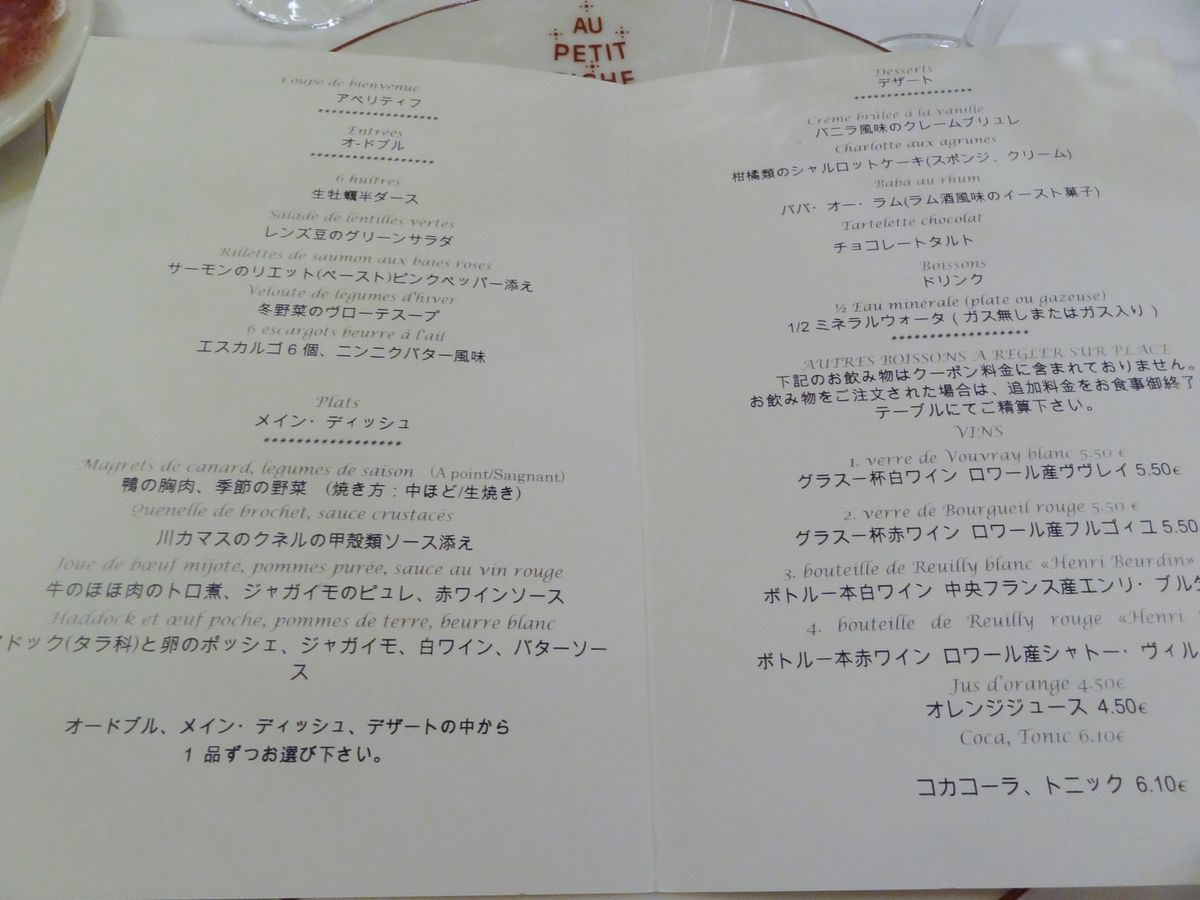 AU
PETIT
Coupe de bienvenue
アペリティフ
Entrées
オ-ドブル
6 huîtres
生牡蠣半ダース
Salade de lentilles vertes
レンズ豆のグリーンサラダ
Rillettes de saumon aux baies roses
サーモンのリエット(ペースト)ピンクペッパー添え
Velouté de légumes d'hiver
冬野菜のヴローテスープ
6 escargots beurre à l'ail
エスカルゴ6個、ニンニクバター風味
Plats
メイン・ディッシュ
Magrets de canard, légumes de saison (A point/Saignant)
鴨の胸肉、季節の野菜 (焼き方:中ほど/生焼き)
Quenelle de brochet, sauce crustacés
川カマスのクネルの甲殻類ソース添え
Joue de bœuf mijoté, pommes purée, sauce au vin rouge
牛のほほ肉のトロ煮、ジャガイモのピュレ、赤ワインソース
Haddock et œuf poché, pommes de terre, beurre blanc
ドック(タラ科)と卵のポッシェ、ジャガイモ、白ワイン、バターソー
ス
オードブル、メイン・ディッシュ、デザートの中から
1 品ずつお選び下さい。
Desserts
デザート
Crème brûlée à la vanille
バニラ風味のクレームブリュレ
Charlotte aux agrunes
柑橘類のシャルロットケーキ(スポンジ、クリーム)
Baba au rhum
ババ・オー・ラム(ラム酒風味のイースト菓子)
Tartelette chocolat
チョコレートタルト
Boissons
ドリンク
½ Eau minérale (plate ou gazeuse)
1/2 ミネラルウォータ ( ガス無しまたはガス入り )
AUTRES BOISSONS A REGLER SUR PLACE
下記のお飲み物はクーポン料金に含まれておりません。
お飲み物をご注文された場合は、追加料金をお食事御終了
テーブルにてご精算下さい。
VINS
1. verre de Vouvray blanc 5.50 €
グラス一杯白ワイン ロワール産ヴヴレイ 5.50€
2. verre de Bourgueil rouge 5.50 €
グラス一杯赤ワイン ロワール産フルゴィユ 5.50
3. bouteille de Reuilly blanc «Henri Beurdin»
ボトル一本白ワイン 中央フランス産エンリ・ブルダ
4. bouteille de Reuilly rouge «Henri
ボトル一本赤ワイン ロワール産シャトー・ヴィル
Jus d'orange 4.50€
オレンジジュース 4.50€
Coca, Tonic 6.10€
コカコーラ、トニック 6.10€